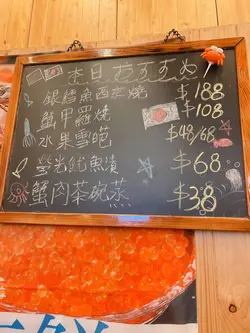 本日おすすめ!
銀鱈魚西京燒 $188
蟹甲羅燒 $108
水果雪吧 $48/68
螢光魷魚漬 $68
蟹肉茶碗蒸 $38